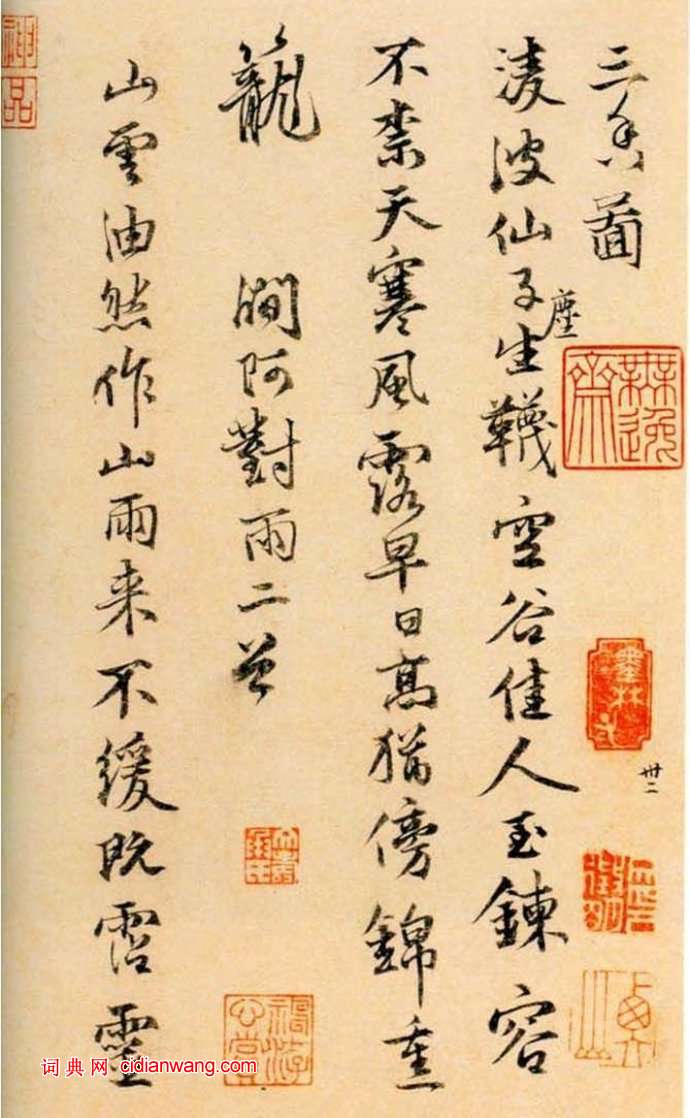 三香圖
淩波仙子生塵韈空谷佳人玉鍊容
不柰天寒風露早日高猶傍錦熏
籠　澗阿對雨二首
山雲油然作山雨来不緩既霑靈
卅二
神品
词典网 cidianwang.com